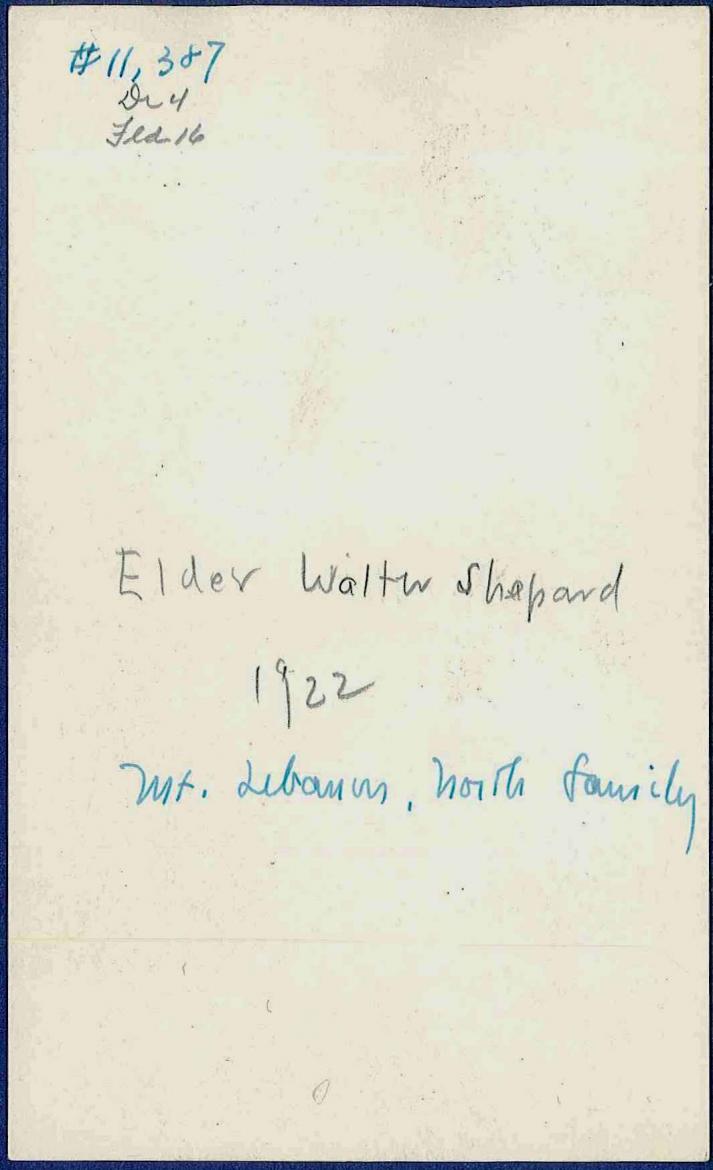 #11,387
Dr 4
Fld 16
Elder Walter Shepard
1922
Mt. Lebanon, North family